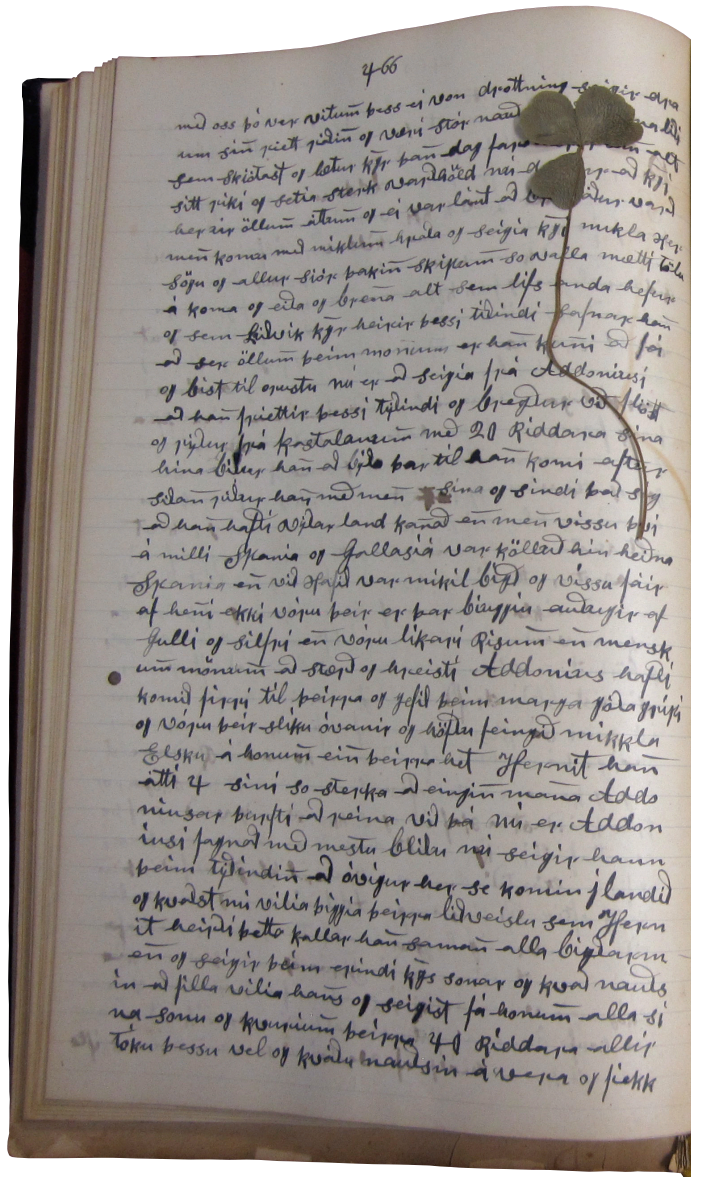 466
með oss þó ver vitum̄ þess ei von drottning seigir
um sin̄ riett ridin̄ og veri stór
sem skiotast og letur kȳr þan̄ dag alt
sitt riki og setia sterk vardhöld nú að kȳr
her rir öllum̄ átum̄ og ei var lánt að vard
men̄ komu með miklum̄ hrada og seigia kȳi mikla Her
sögu og allur siór þakin̄ skipum̄ so valla mætti tölu
á koma og eida og brena alt sem lifs anda hefur
og sem Ludvik kȳr heirir þessi tidindi safnar han̄
að ser öllum̄ þeim mon̄um er han̄ kun̄i að fá
og bist til orustu nú er að seigia frá Addoniusi
að han̄ friettir þessi tydindi og bregdur vid fliött
og ridur frá kastalanum̄ með 20 Riddara sína
hina bidur han̄ að bida þar til han̄ komi aftur
sidan̄ ridur han̄ með men̄ sina og sindi það sig
að han̄ hafti vidar land kanad en̄ men̄ vissu þvi
á milli Spania og Gallasiá var kölled hin heidna
Spania en̄ vid Hafid var mikil bigd og vissu fáir
af hen̄i ekki vóru þeir er þar biuggiu audugir af
Gulli og silfri en̄ vóru likari Risum̄ en̄ mensk
um̄ mönum̄ að stærd og hreisti Addonius hafti
komid firri til þeirra og gefid þeim marga góda gripi
og vóru þeir sliku óvanir og höfdu feingid mikkla
Elsku á honum ein̄ þeirra het Jfernit han̄
átti 4 sini so sterka að eingin̄ man̄a Addo
niusar þurfti að reina vid þá Nú er Addon
iusi fagnad með mestu blidu nú seigir hann
þeim tidindin̄ að óvigur her se komin j landid
og kvadst nú vilia þiggia þeirra lidveislu sem Jfern
it heirdi þetta kallar han̄ saman̄ alla bigdarm
en̄ og seigir þeim erindi kȳs sonar og kvad nauds
in að filla vilia han̄s og seigist fá honum̄ alla si
na sonu og kvurium̄ þeirra 40 Riddara allir
tóku þessu vel og kvádu naudsin á vera og fiekk